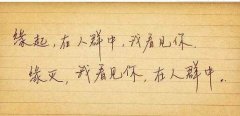 缘起，在人群中，我看见你.
缘灭，我看见你，在人群中..